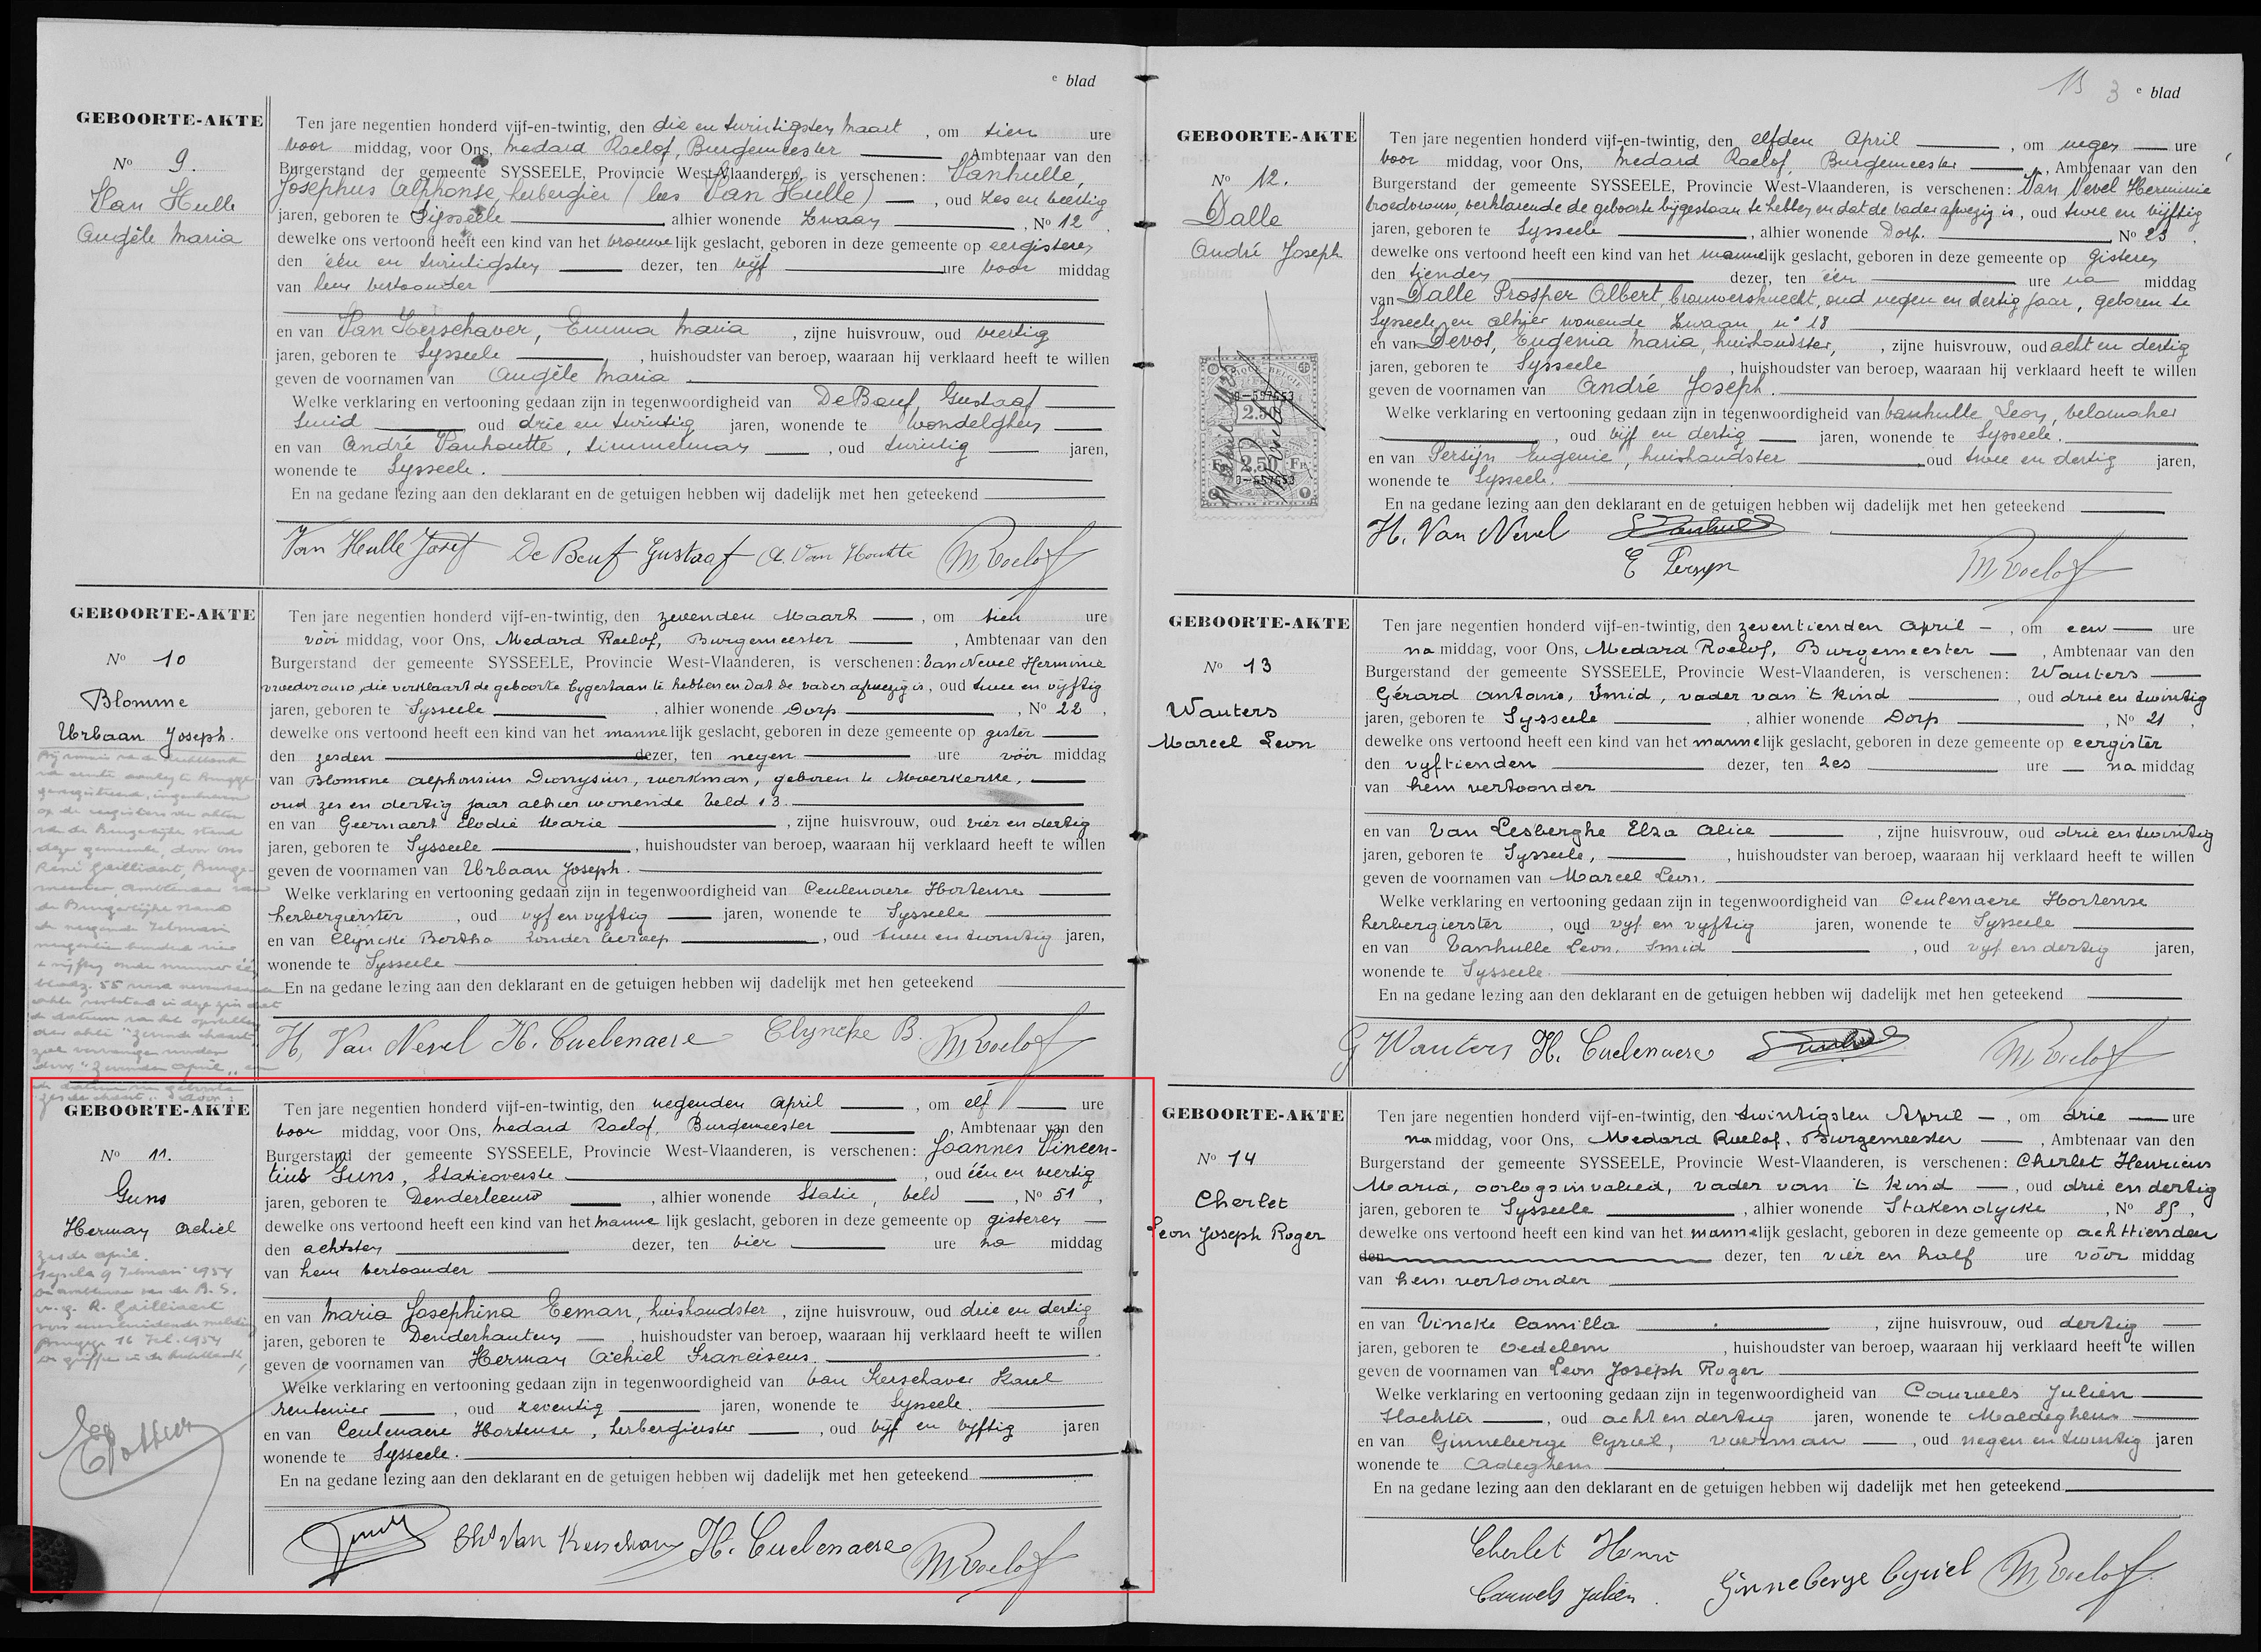 e blad
GEBOORTE-AKTE
No 9.
Van Hulle
Angèle Maria
Ten jare negentien honderd vijf-en-twintig, den drie en twintigsten Maart, om tien ure
voor middag, voor Ons, Medard Roelof, Burgemeester, Ambtenaar van den
Burgerstand der gemeente SYSSEELE, Provincie West-Vlaanderen, is verschenen: Vanhulle,
Josephus Alphonse, herbergier (lees Van Hulle), oud zes en veertig
jaren, geboren te Sijsseele, alhier wonende Zwaan, No 12,
dewelke ons vertoond heeft een kind van het vrouwelijk geslacht, geboren in deze gemeente op eergisteren
den één en twintigsten dezer, ten vijf ure voor middag
van hem vertoonder
en van Van Kerschaver, Emma Maria, zijne huisvrouw, oud veertig
jaren, geboren te Sysseele, huishoudster van beroep, waaraan hij verklaard heeft te willen
geven de voornamen van Angèle Maria
Welke verklaring en vertooning gedaan zijn in tegenwoordigheid van De Beuf Gustaaf
Smid oud drie en twintig jaren, wonende te Wondelghem
en van André Vanhoutte, timmelman, oud twintig jaren,
wonende te Sysseele.
En na gedane lezing aan den deklarant en de getuigen hebben wij dadelijk met hen geteekend
Van Hulle Josef De Beuf Gustaaf A. Van Houtte M Roelof
GEBOORTE-AKTE
No 10
Blomme
Urbaan Joseph.
Ten jare negentien honderd vijf-en-twintig, den zevenden Maart, om tien ure
vóór middag, voor Ons, Medard Roelof, Burgemeester, Ambtenaar van den
Burgerstand der gemeente SYSSEELE, Provincie West-Vlaanderen, is verschenen: Van Nevel Herminie
vroedvrouw, die verklaart de geboorte bygestaan te hebben en dat de vader afwezig is, oud twee en vyftig
jaren, geboren te Sysseele, alhier wonende Dorp, No 22,
dewelke ons vertoond heeft een kind van het mannelijk geslacht, geboren in deze gemeente op gister
den zesden dezer, ten negen ure vóór middag
van Blomme Alphonsius Dionysius, werkman, geboren te Moerkerke,
oud zes en dertig jaar alhier wonende Veld 13.
en van Geernaert Elodie Marie, zijne huisvrouw, oud vier en dertig
jaren, geboren te Sysseele, huishoudster van beroep, waaraan hij verklaard heeft te willen
geven de voornamen van Urbaan Joseph.
Welke verklaring en vertooning gedaan zijn in tegenwoordigheid van Ceulenaere Hortense
herbergierster, oud vyf en vyftig jaren, wonende te Sysseele
en van Clyncke Bertha zonder beroep, oud twee en twintig jaren,
wonende te Sysseele
En na gedane lezing aan den deklarant en de getuigen hebben wij dadelijk met hen geteekend
H. Van Nevel H. Cuelenaere Clyncke B. M Roelof
GEBOORTE-AKTE
No 11.
Guns
Herman Achiel
zesde april.
9 Februari 1954
R. Gailliaert
Brugge 16 Feb. 1954
Ten jare negentien honderd vijf-en-twintig, den negenden April, om elf ure
voor middag, voor Ons, Medard Roelof, Burgemeester, Ambtenaar van den
Burgerstand der gemeente SYSSEELE, Provincie West-Vlaanderen, is verschenen: Joannes Vincen-
tius Guns, Statieoverste, oud één en veertig
jaren, geboren te Denderleeuw, alhier wonende Statie, veld, No 51,
dewelke ons vertoond heeft een kind van het mannelijk geslacht, geboren in deze gemeente op gisteren
den achtsten dezer, ten vier ure na middag
van hem vertoonder
en van Maria Josephina Eeman, huishoudster, zijne huisvrouw, oud drie en dertig
jaren, geboren te Denderhautem, huishoudster van beroep, waaraan hij verklaard heeft te willen
geven de voornamen van Herman Achiel Franciscus.
Welke verklaring en vertooning gedaan zijn in tegenwoordigheid van Van Kerschaver Karel
rentenier, oud zeventig jaren, wonende te Sysseele.
en van Ceulenaere Hortense, herbergierster, oud vijf en vyftig jaren
wonende te Sysseele.
En na gedane lezing aan den deklarant en de getuigen hebben wij dadelijk met hen geteekend
Guns Chs Van Kerschaver H. Cuelenaere M Roelof
3 e blad
GEBOORTE-AKTE
No 12.
Dalle
André Joseph
2.50
Fr. 2.50 Fr.
Ten jare negentien honderd vijf-en-twintig, den elfden April, om negen ure
voor middag, voor Ons, Medard Roelof, Burgemeester, Ambtenaar van den
Burgerstand der gemeente SYSSEELE, Provincie West-Vlaanderen, is verschenen: Van Nevel Herminie
vroedvrouw, verklarende de geboorte bijgestaan te hebben en dat de vader afwezig is, oud twee en vijftig
jaren, geboren te Sysseele, alhier wonende Dorp. No 23,
dewelke ons vertoond heeft een kind van het mannelijk geslacht, geboren in deze gemeente op gisteren
den tienden dezer, ten één ure na middag
van Dalle Prosper Albert, brouwersknecht, oud negen en dertig jaar, geboren te
Sysseele, en alhier wonende Zwaan no 18
en van Devos, Eugenia Maria, huishoudster, zijne huisvrouw, oud acht en dertig
jaren, geboren te Sysseele, huishoudster van beroep, waaraan hij verklaard heeft te willen
geven de voornamen van André Joseph.
Welke verklaring en vertooning gedaan zijn in tegenwoordigheid van Vanhulle Leon, velomaker
, oud vijf en dertig jaren, wonende te Sysseele.
en van Persijn Eugenie, huishoudster oud twee en dertig jaren,
wonende te Sysseele.
En na gedane lezing aan den deklarant en de getuigen hebben wij dadelijk met hen geteekend
H. Van Nevel
E Persyn M Roelof
GEBOORTE-AKTE
No 13
Wauters
Marcel Leon
Ten jare negentien honderd vijf-en-twintig, den zeventienden April, om een ure
na middag, voor Ons, Medard Roelof, Burgemeester, Ambtenaar van den
Burgerstand der gemeente SYSSEELE, Provincie West-Vlaanderen, is verschenen: Wauters
Gérard Antoine, smid, vader van 't kind, oud drie en twintig
jaren, geboren te Sysseele, alhier wonende Dorp, No 21,
dewelke ons vertoond heeft een kind van het mannelijk geslacht, geboren in deze gemeente op eergister
den vyftienden dezer, ten zes ure na middag
van hem vertoonder
en van Van Lesberghe Elza Alice, zijne huisvrouw, oud drie en twintig
jaren, geboren te Sysseele, huishoudster van beroep, waaraan hij verklaard heeft te willen
geven de voornamen van Marcel Leon.
Welke verklaring en vertooning gedaan zijn in tegenwoordigheid van Ceulenaere Hortense
herbergierster, oud vyf en vyftig jaren, wonende te Sysseele
en van Vanhulle Leon, smid, oud vyf en dertig jaren,
wonende te Sysseele.
En na gedane lezing aan den deklarant en de getuigen hebben wij dadelijk met hen geteekend
G Wauters H. Cuelenaere M Roelof
GEBOORTE-AKTE
No 14
Cherlet
Leon Joseph Roger
Ten jare negentien honderd vijf-en-twintig, den twintigsten April, om drie ure
na middag, voor Ons, Medard Roelof, Burgemeester, Ambtenaar van den
Burgerstand der gemeente SYSSEELE, Provincie West-Vlaanderen, is verschenen: Cherlet Henricus
Maria, oorlogsinvalied, vader van 't kind, oud drie en dertig
jaren, geboren te Sysseele, alhier wonende Stakendycke, No 85,
dewelke ons vertoond heeft een kind van het mannelijk geslacht, geboren in deze gemeente op achttienden
den dezer, ten vier en half ure vóór middag
van hem vertoonder
en van Vincke Camilla, zijne huisvrouw, oud dertig
jaren, geboren te Oedelem, huishoudster van beroep, waaraan hij verklaard heeft te willen
geven de voornamen van Leon Joseph Roger
Welke verklaring en vertooning gedaan zijn in tegenwoordigheid van Cauwels Julien
Slachter, oud acht en dertig jaren, wonende te Maldeghem
en van Ginneberge Cyriel, voerman, oud negen en twintig jaren
wonende te Adeghem
En na gedane lezing aan den deklarant en de getuigen hebben wij dadelijk met hen geteekend
Cherlet Henri
Cauwels Julien. Ginneberge Cyriel M Roelof